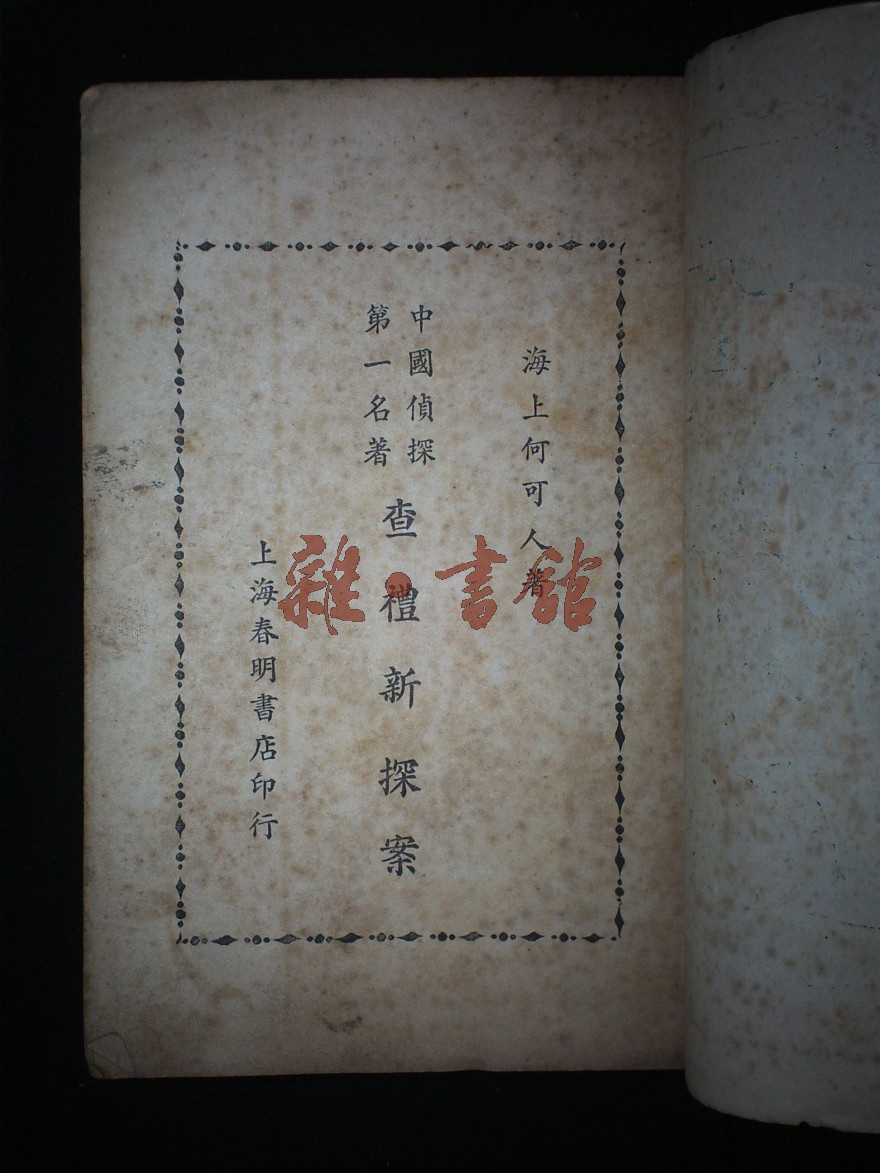 海上何可人著
中國偵探
第一名著
查禮新探案
上海春明書店印行
雜·書館